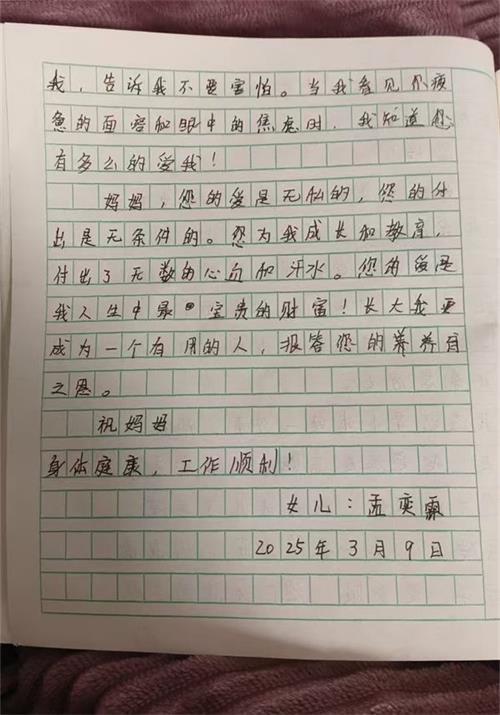 我，告诉我不要害怕。当我看见你疲
惫的面容和眼中的焦虑时，我知道您
有多么的爱我！
妈妈，您的爱是无私的，您的付
出是无条件的。您为我成长和教育，
付出了无数的心血和汗水。您的爱是
我人生中最宝贵的财富！长大我要
成为一个有用的人，报答您的养育
之恩。
祝妈妈
身体庭康，工作顺利！
女儿：孟奕霖
2025年3月9日